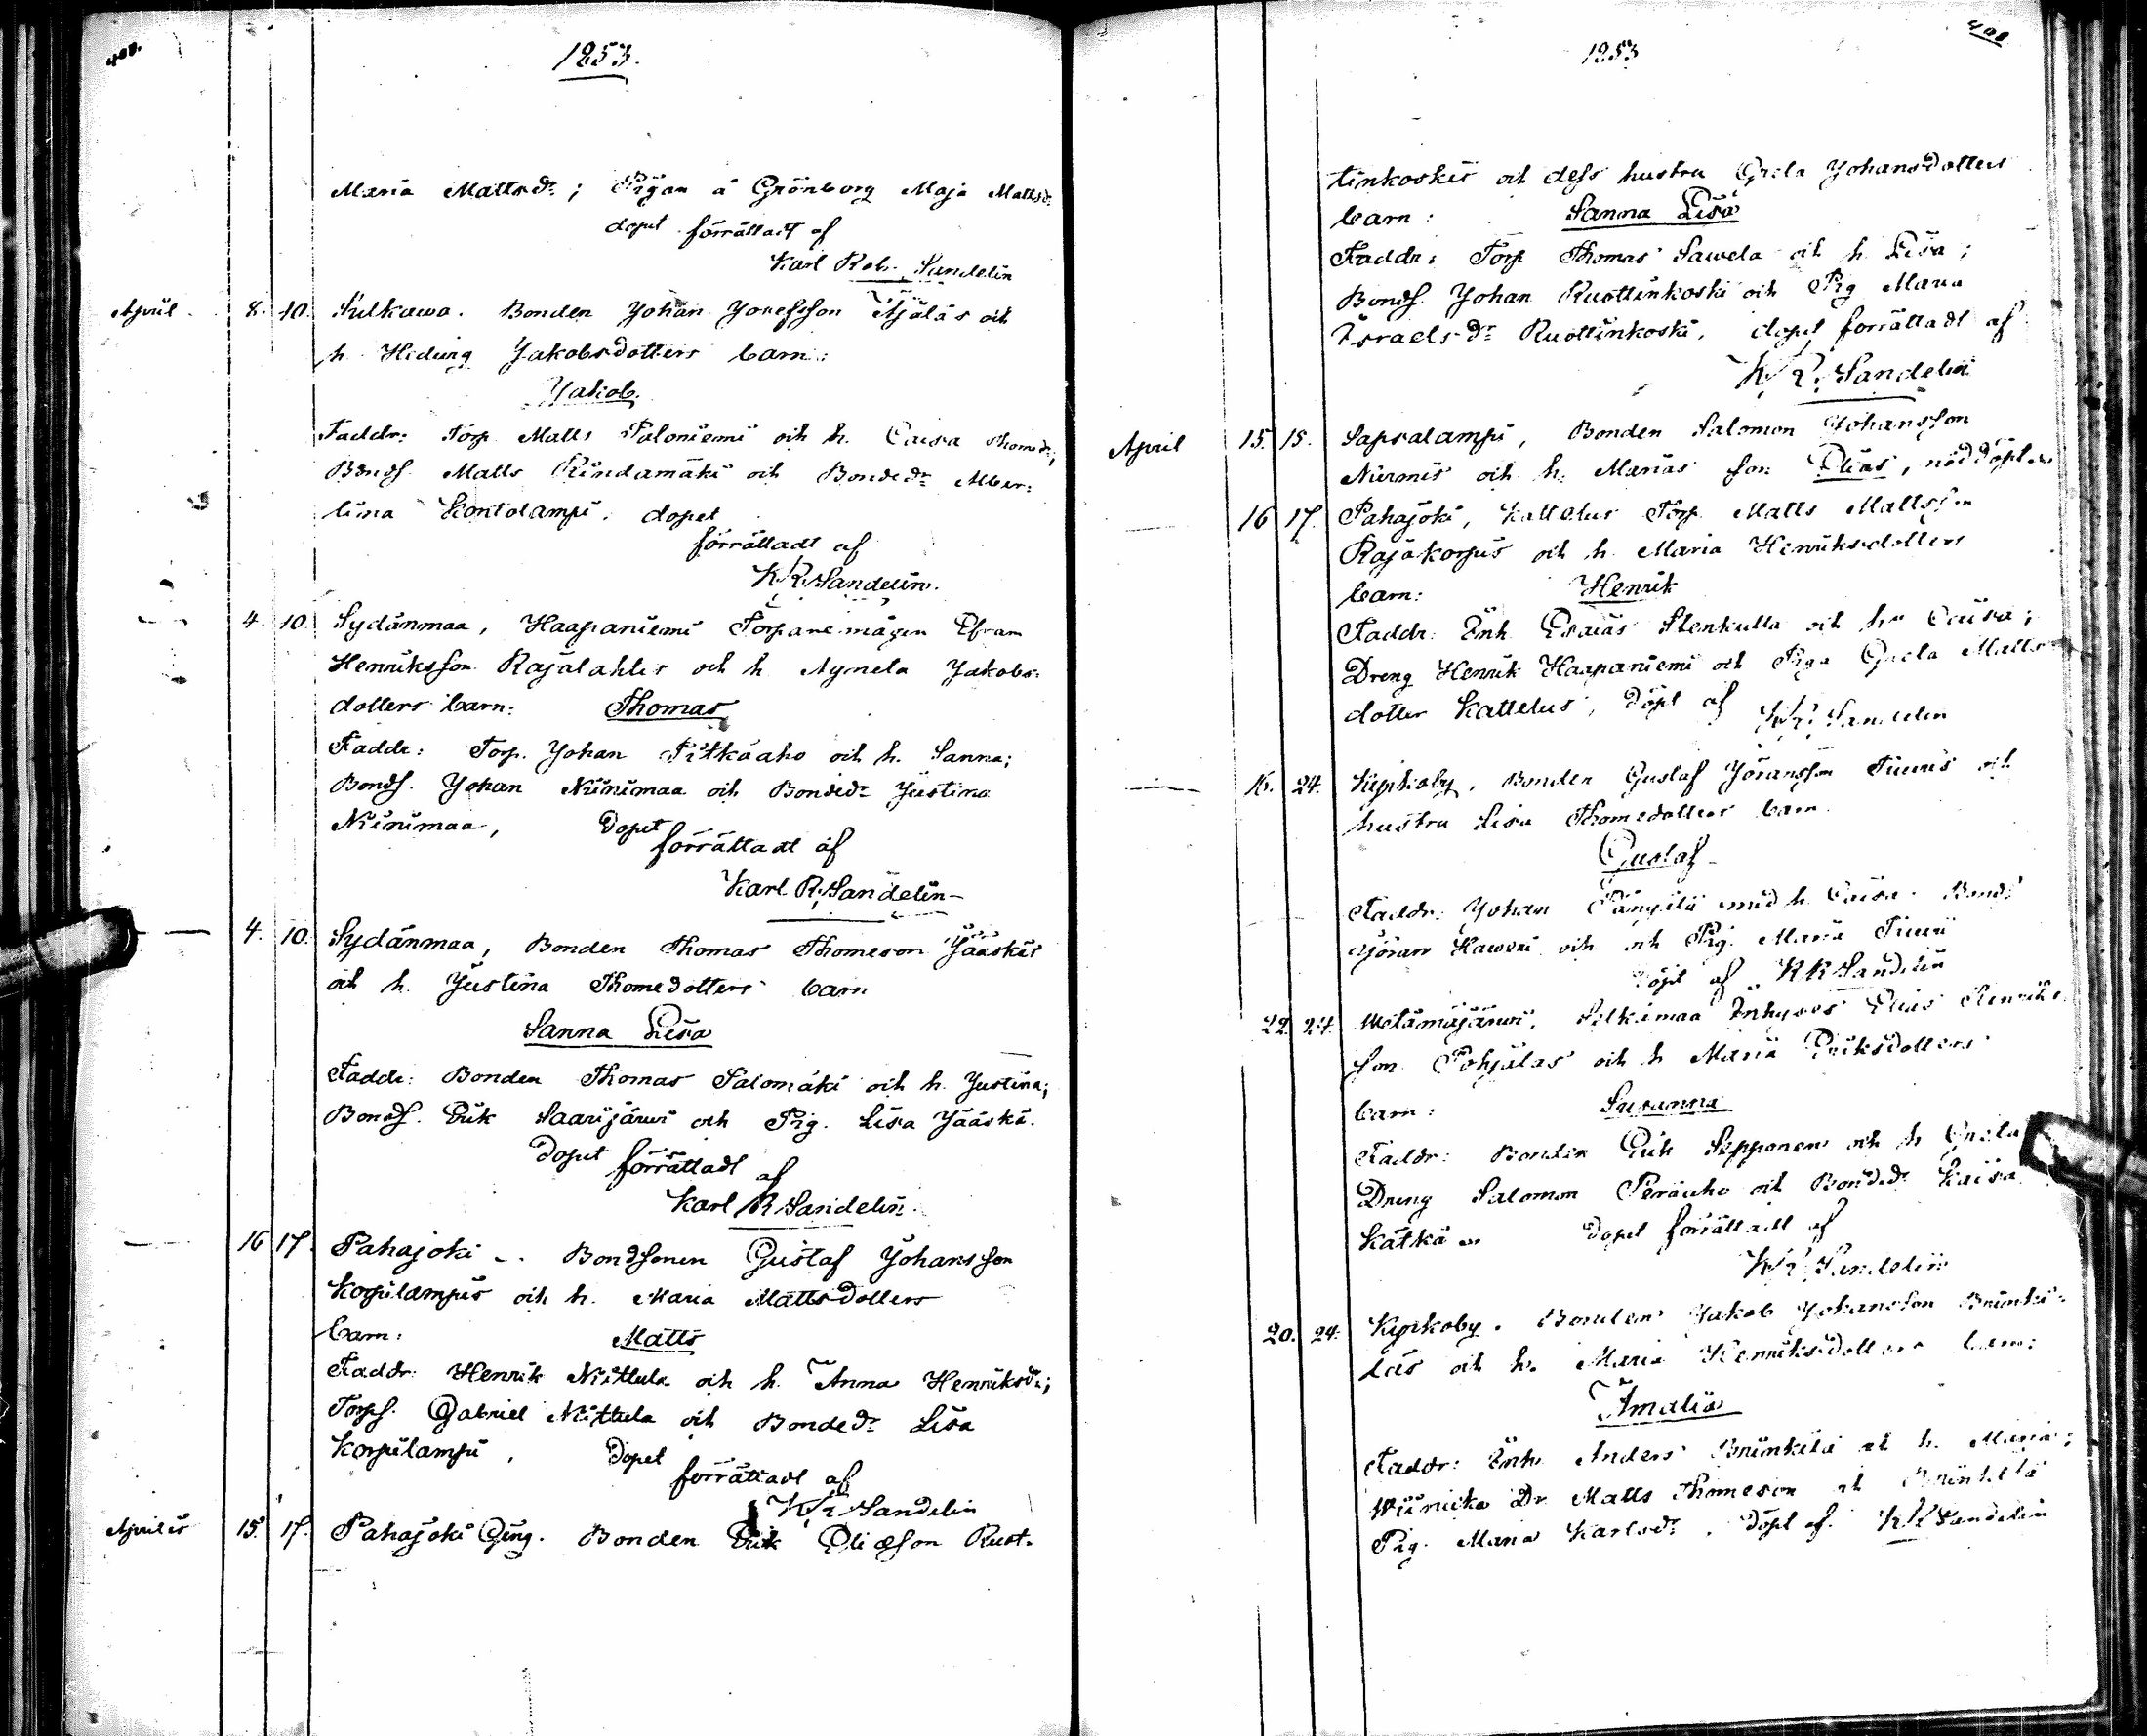 408.
1853.
Maria Mattsdr; Pigan å Grönborg Maja Mattsdr
dopet förrättadt af
Karl Rob. Sandelin
April 8. 10. Sulkawa. Bonden Johan Josefsson Ajäläs och
h. Hedvig Jakobsdotters barn:
Jakob.
Faddr: Torp. Matts Paloniemi och h. Caisa Thomedr;
Bonds. Matts Rindamäki och Bondedr Alber-
tina Kontolampi. dopet
förrättadt af
K. R. Sandelin.
4. 10. Sydänmaa, Haapaniemi Torparemågen Efram
Henriksson Rajalahtis och h. Agneta Jakobs-
dotters barn: Thomas
Faddr: Torp. Johan Pitkäaho och h. Sanna;
Bonds. Johan Niinimaa och Bondedr Justina
Niinimaa, Dopet
förrättadt af
Karl R. Sandelin
4. 10. Sydänmaa, Bonden Thomas Thomeson Jääskis
och h. Justina Thomedotters barn
Sanna Lisa
Faddr: Bonden Thomas Salomäki och h. Justina;
Bonds. Erik Saarijärwi och Pig. Lisa Jääski.
Dopet förrättadt
af
Karl R Sandelin.
16 17. Pahajoki. Bondsonen Gustaf Johansson
Korpilampis och h. Maria Mattsdotters
barn: Matts
Faddr: Henrik Niittula och h. Anna Henriksdr;
Torps. Gabriel Niittula och Bondedr Lisa
Korpilampi, Dopet
förrättadt af
K R Sandelin
15. 17. Pahajoki Qing. Bonden Erik Eliæson Ruot-
1853
tinkoskis och dess hustru Greta Johansdotters
barn: Sanna Lisa
Faddr: Torp Thomas Sawela och h. Lisa;
Bonds. Johan Ruottinkoski och Pig Maria
Israelsdr Ruottinkoski. dopet förrättadt af
K. R. Sandelin
April 15. 15. Sapsalampi, Bonden Salomon Johansson
Nurmis och h. Marias son Elias, nöddöpt
16 17. Pahajoki, Kattelus Torp. Matts Mattsson
Rajakorpis och h. Maria Henriksdotters
barn: Henrik
Faddr: Enh. Esaias Stenkulla och hu Caisa;
Dreng Henrik Haapaniemi och Piga Greta Matts-
dotter Kattelus, Döpt af K R Sandelin
16. 24. Kyrkoby, Bonden Gustaf Jöransson Tiuris och
hustru Lisa Thomedotters barn
Gustaf
Faddr: Johan med h. Caisa. Bonds
Jöran och Pig. Maria
Döpt af K R Sandelin
22. 24. Inhyses Elias Henriks-
son Pohjalas och h Maria Eriksdotters
barn: Susanna
Faddr: Bonden Erik Sepponen och h Greta
Dreng Salomon Peräaho och Bondedr Kaisa
Kätkä dopet förrättadt af
K R Sandelin
20. 24. Kyrkoby. Bonden Jakob Johansson Brunki-
las och h. Maria Henriksdotters barn:
Amalia
Faddr: Enh. Anders Brunkila och h. Maria;
Dr. Matts Thomeson
Pig. Maria Karlsdr, döpt af K R Sandelin